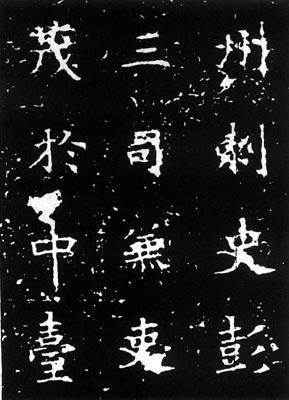 州刺史彭
三司兼吏
茂於中臺